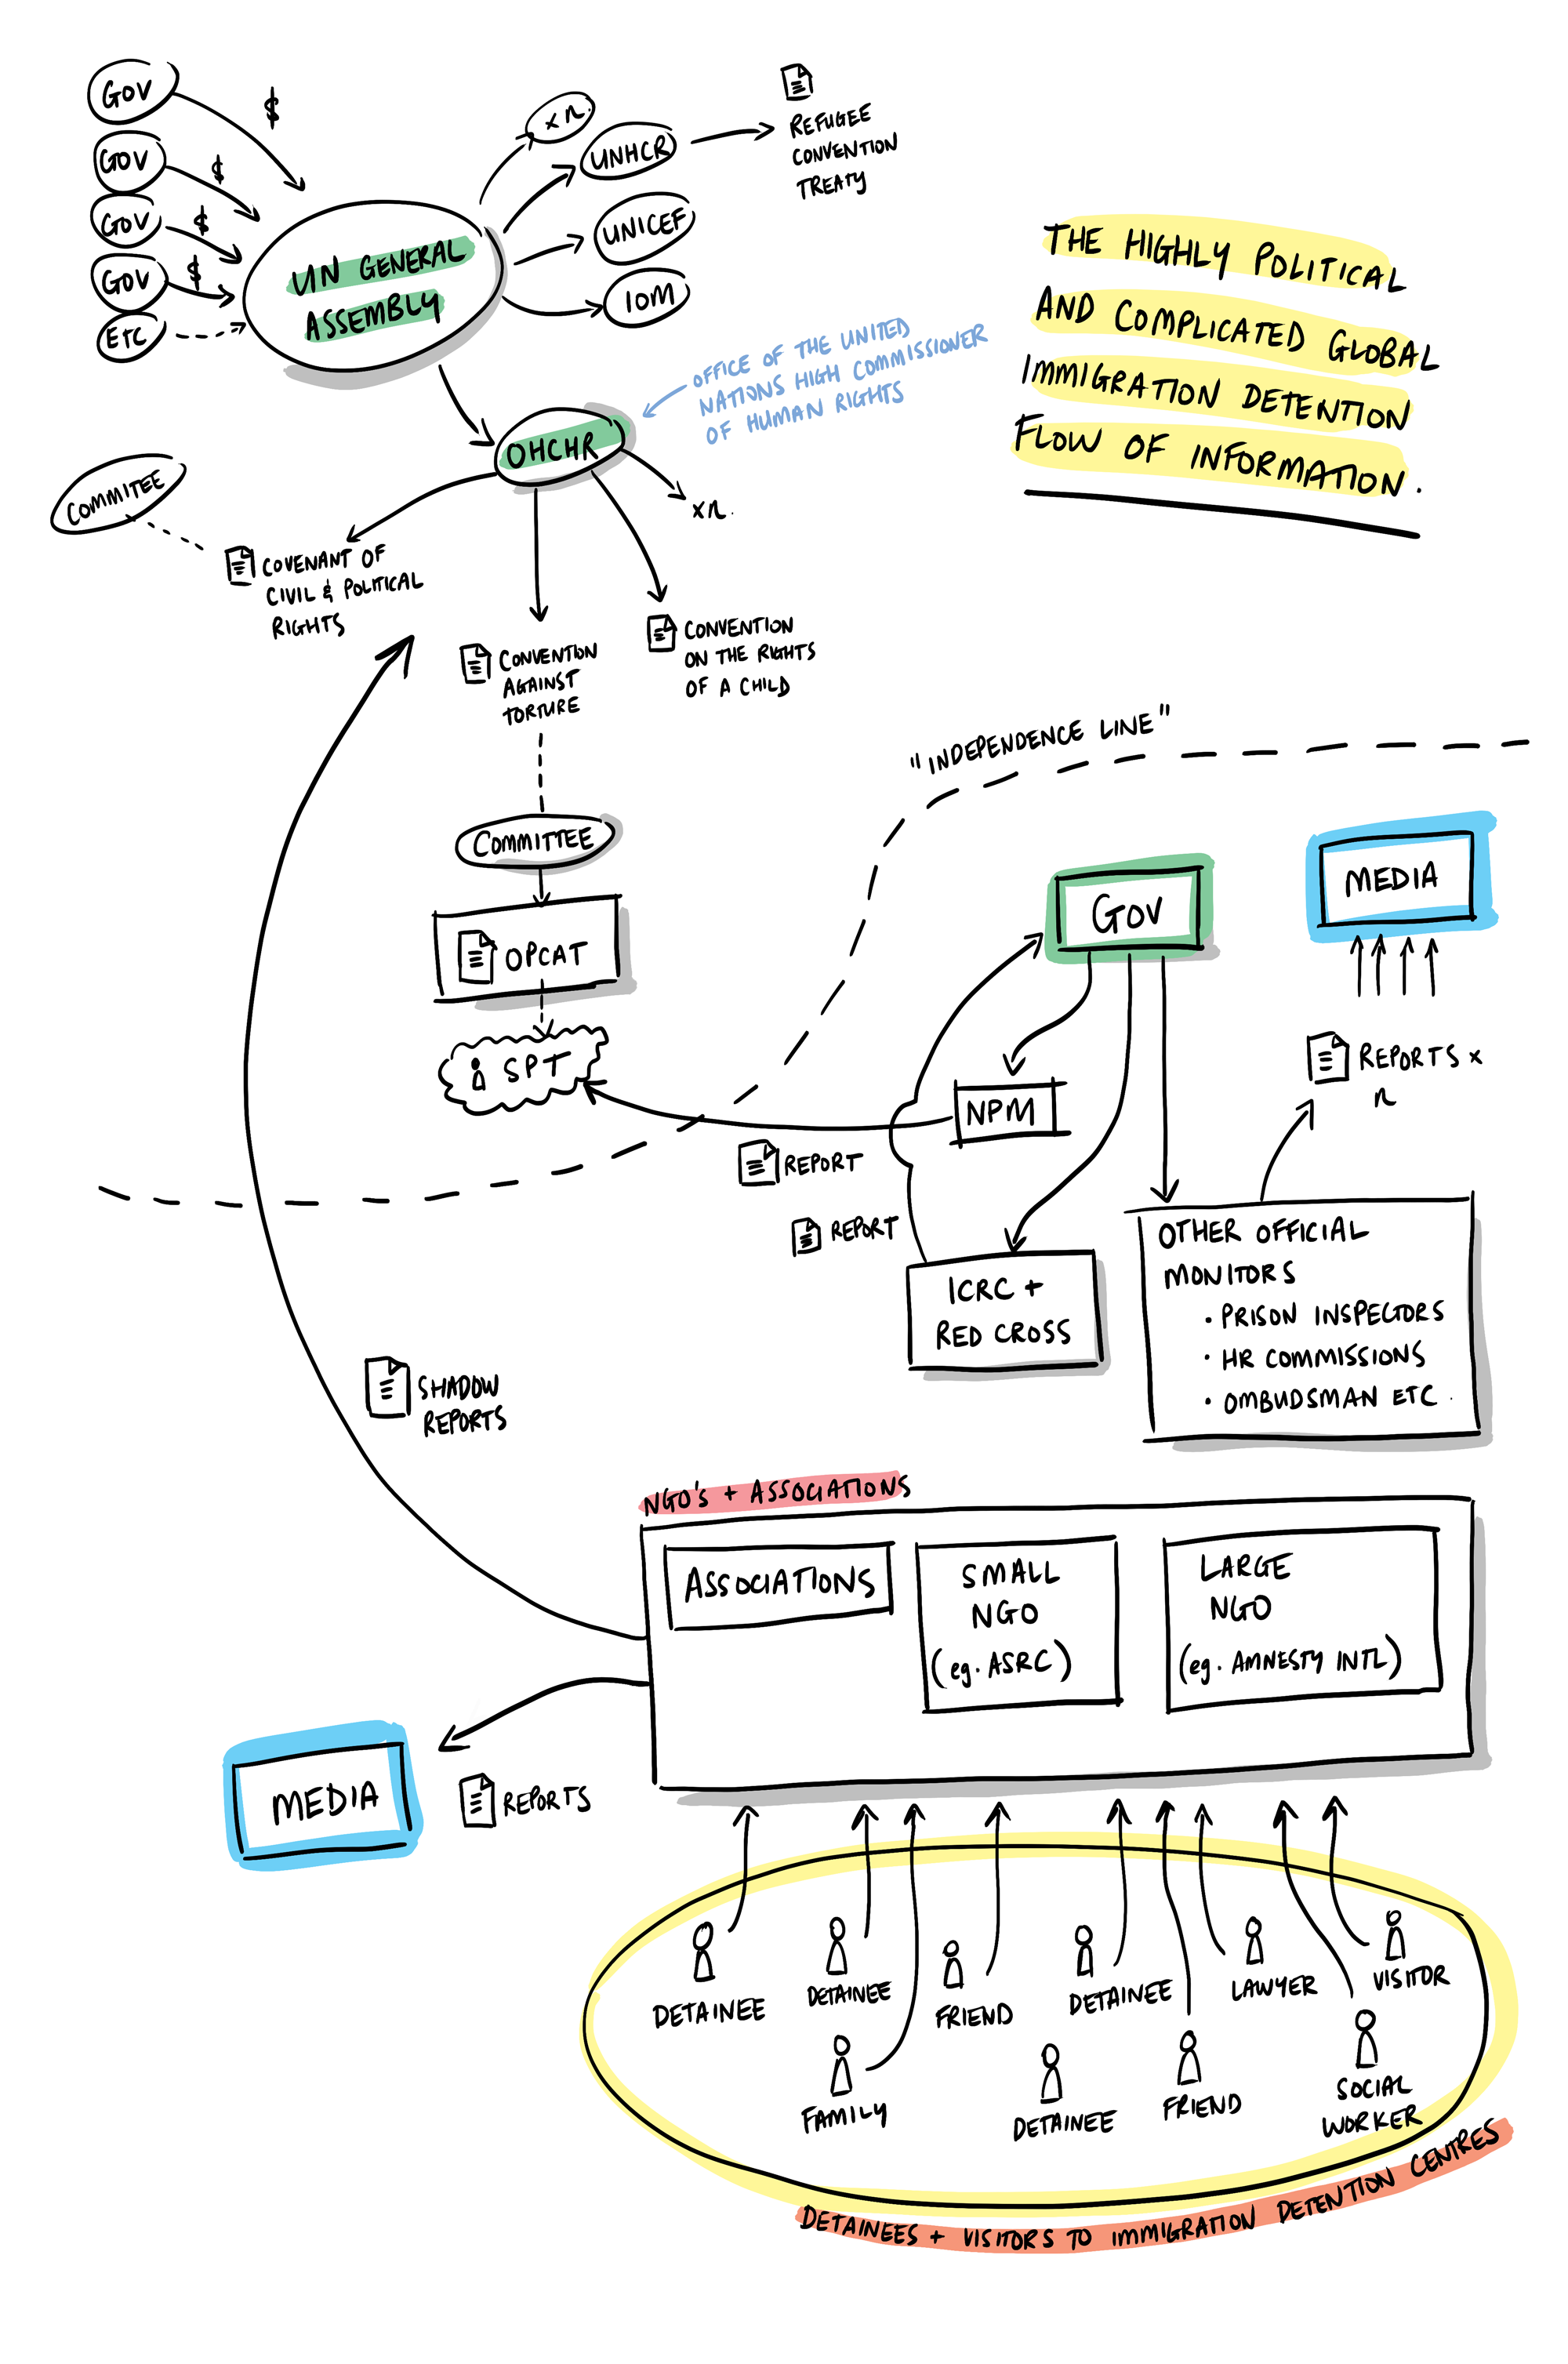 GOV
$
GOV
$
GOV
$
GOV
$
ETC
UN GENERAL
ASSEMBLY
xn.
UNHCR
UNICEF
IOM
REFUGEE
CONVENTION
TREATY
THE HIGHLY POLITICAL
AND COMPLICATED GLOBAL
IMMIGRATION DETENTION
FLOW OF INFORMATION.
OFFICE OF THE UNITED
NATIONS HIGH COMMISSIONER
OF HUMAN RIGHTS
OHCHR
xn.
COMMITEE
COVENANT OF
CIVIL & POLITICAL
RIGHTS
CONVENTION
AGAINST
TORTURE
CONVENTION
ON THE RIGHTS
OF A CHILD
"INDEPENDENCE LINE"
COMMITTEE
OPCAT
SPT
GOV
MEDIA
REPORTS x
n
NPM
REPORT
REPORT
ICRC +
RED CROSS
OTHER OFFICIAL
MONITORS
• PRISON INSPECTORS
• HR COMMISSIONS
• OMBUDSMAN ETC.
SHADOW
REPORTS
NGO'S + ASSOCIATIONS
ASSOCIATIONS
SMALL
NGO
(eg. ASRC)
LARGE
NGO
(eg. AMNESTY INTL)
MEDIA
REPORTS
DETAINEE
DETAINEE
FRIEND
DETAINEE
LAWYER
VISITOR
FAMILY
DETAINEE
FRIEND
SOCIAL
WORKER
DETAINEES + VISITORS TO IMMIGRATION DETENTION CENTRES